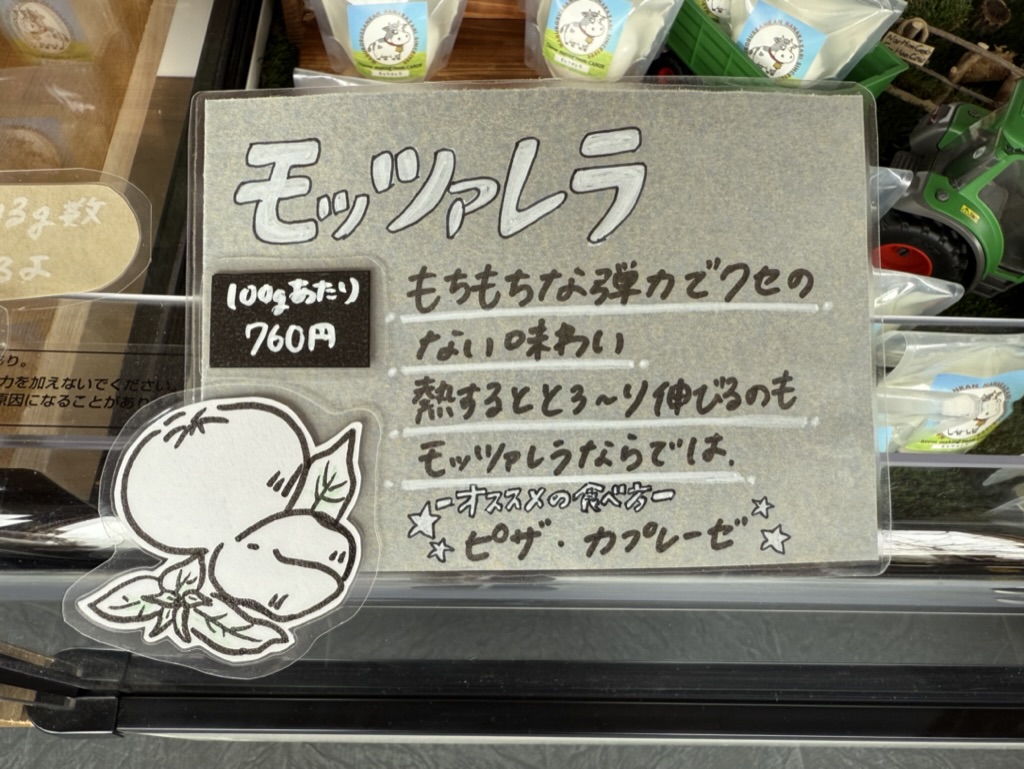 モッツァレラ
100gあたり
760円
もちもちな弾力でクセの
ない味わい
熱するととろ～り伸びるのも
モッツァレラならでは.
ーオススメの食べ方ー
ピザ・カプレーゼ
13g数
力を加えないでください。
原因になることがあり